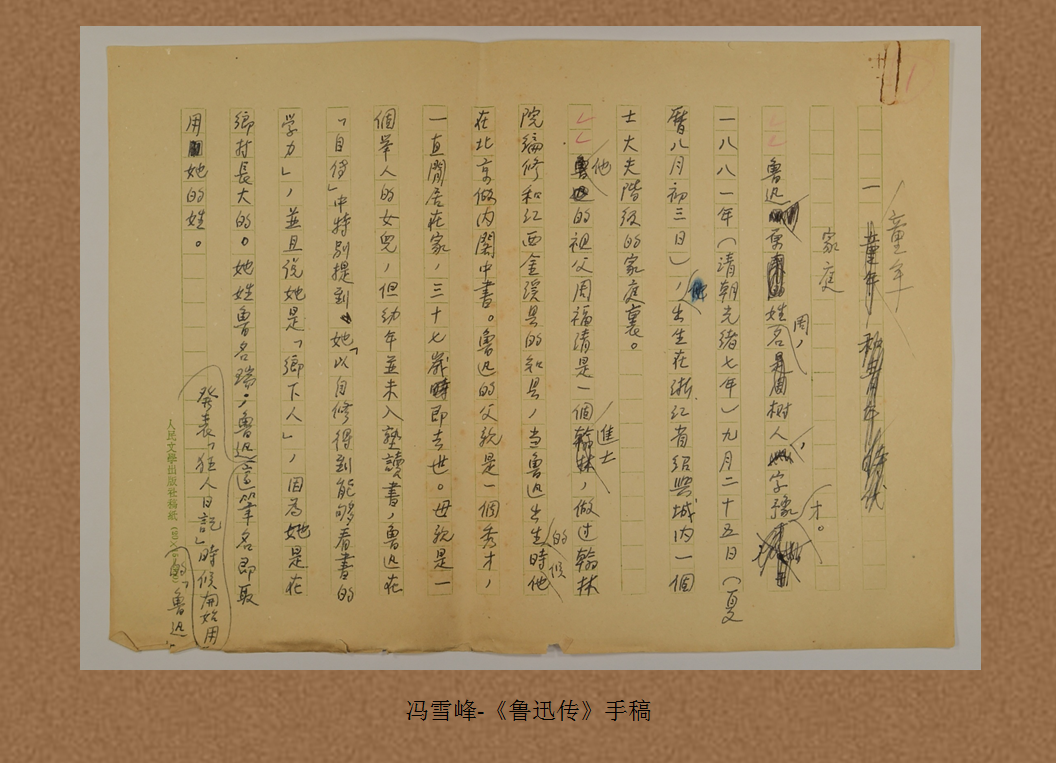 童年
一 童年和青年時代
家庭
魯迅原姓周,名樹人,字豫才。
一八八一年(清朝光緒七年)九月二十五日(夏
曆八月初三日),他出生在浙江省紹興城內一個
士大夫階級的家庭裏。
他的祖父周福清是一個翰林進士,做过翰林
院編修和江西金溪县的知县,当魯迅出生的時候他
在北京做内閣中書。魯迅的父親是一個秀才,
一直閒居在家,三十七歲時即去世。母親是一
個舉人的女兒,但幼年並未入塾讀書,魯迅在
「自傳」中特别提到她「以自修得到能够看書的
学力」,並且说她是「鄉下人」,因為她是在
鄉村長大的。她姓魯名瑞,魯迅這筆名即取
用她的姓。
發表「狂人日記」時候開始用
的「魯迅」
人民文學出版社稿紙
冯雪峰-《鲁迅传》手稿